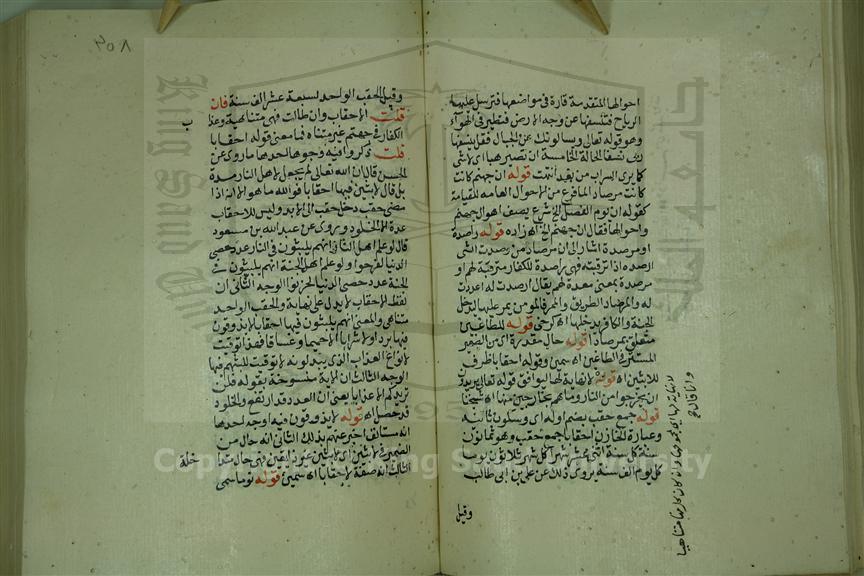 احوالها المتقدمة قارة في مواضعها فترسل عليها
الرياح فتنسفها عن وجه الارض فتطير في الهواء
وهو قوله تعالى ويسالونك عن الجبال فقل ينسفها
ربى نسفا الحالة الخامسة ان تصير هباء اى لا شى
كما يرى السراب من بعد انتهت قوله ان جهنم كانت
كانت مرصادا لما فرغ من الاحوال العامه للقيامة
كقوله ان يوم الفصل الخ شرع يصف اهوال جهنم
واحوالها فقال ان جهنم الخ اه زاده قوله راصدة
او مرصدة اشار الى ان مرصادا من رصدت الشى
ارصده اذا ترقبته فهى راصدة للكفار مترقبة لهم او
مرصدة بمعنى معدة لهم يقال ارصدت له اعددت
له والمرصاد الطريق والممر فالمومن يمر عليها ليدخل
الجنة والكافر يدخلها اه كرخى قوله للطاغين
متعلق بمرصادا قوله حال مقدرة اى من الضمير
المستتر فى الطاغين اه سمين وقوله احقابا ظرف
للابثين اه قوله لا نهاية لها ليوافق قوله تعالى يريدون
ان يخرجوا من النار وما هم بخارجين منها اه شيخنا
قوله جمع حقب بضم اوله اى وسكون ثانيه
وعبارة الخازن احقابا جمع حقب وهو ثمانون
سنة كل سنة اثنى عشر شهرا كل شهر ثلاثون يوما
كل يوم الف سنة يروى ذلك عن على بن ابى طالب
وقيل
٨٥٦
وقيل الحقب الواحد لسبعة عشر الف سنة فان
قلت الاحقاب وان طالت فهى متناهية وعذاب
الكفار فى جهنم غير متناه فما معنى قوله احقابا
قلت ذكروا فيه وجوها احدها ما روى عن
الحسن قال ان الله تعالى لم يجعل لاهل النار مدة
بل قال لابثين فيها احقابا فوالله ما هو الا انه اذا
مضى حقب دخل حقب الى الابد وليس للاحقاب
عدة الا الخلود وروى عن عبد الله بن مسعود
قال لو علم اهل النار انهم يلبثون فى النار عدد حصى
الدنيا لفرحوا ولو علم اهل الجنة انهم يلبثون فى
الجنة عدد حصى الدنيا لحزنوا الوجه الثانى ان
لفظ الاحقاب لا يدل على نهاية والحقب الواحد
متناهى والمعنى انهم يلبثون فيها احقابا لا يذوقون
فيها بردا ولا شرابا الا حميما وغساقا فهذا توقيت
لانواع العذاب الذى يبدلونه لا توقيت للبثهم فيها
الوجه الثالث ان الاية منسوخة بقوله فلن
نزيدكم الا عذابا يعنى ان العدد قد ارتفع والخلود
قد حصل اه قوله لا يذوقون فيه اوجه احدها
انه مستانف اخبر عنهم بذلك الثانى انه حال من
الضمير فى لابثين اى لابثين غير ذايقين فهى حال متداخلة
الثالث انه صفة لاحقابا اه سمين قوله نوما سمى